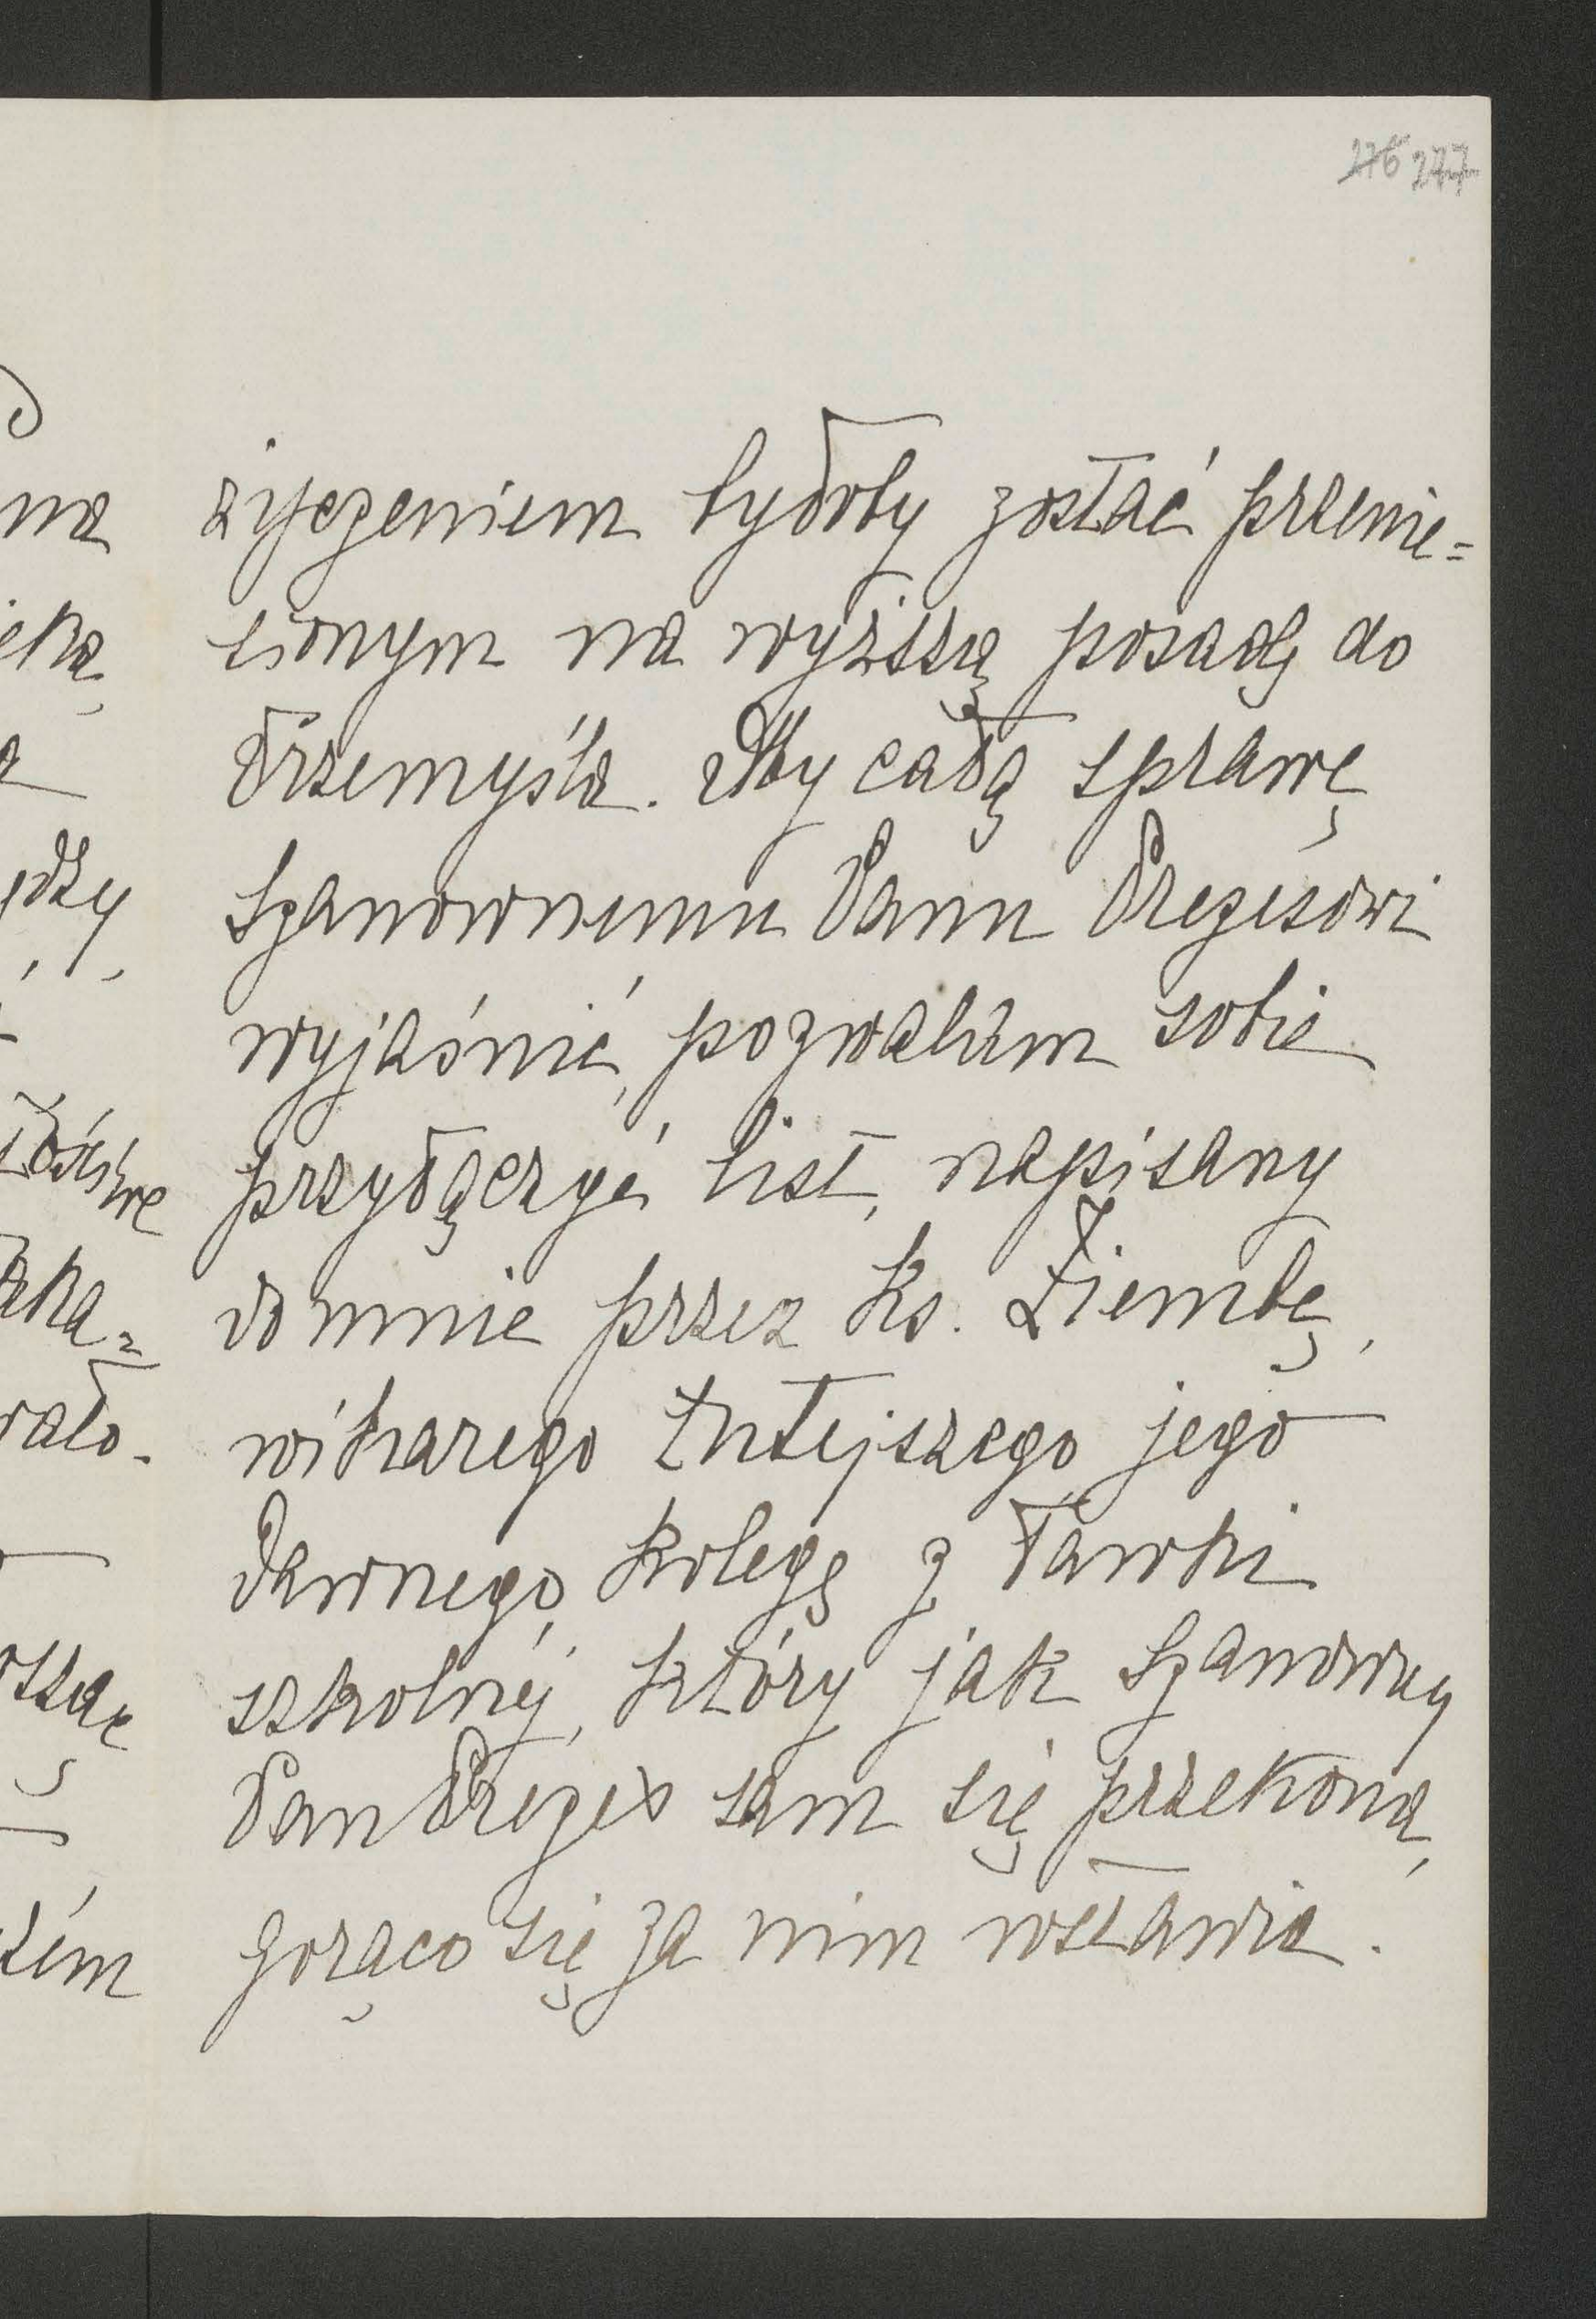 276 277
życzeniem byłoby zostać przenie=
sionym na wyższą posadę do
Przemyśla. Aby całą sprawę
Szanownemu Panu Prezesowi
wyjaśnić, pozwalam sobie
przyłączyć list, napisany
do mnie przez Ks. Ziembę,
wikarego tutejszego jego
dawnego, kolegę z ławki
szkolnéj, który jak Szanowny
Pan Prezes sam się przekona,
gorąco się za nim wstawia.